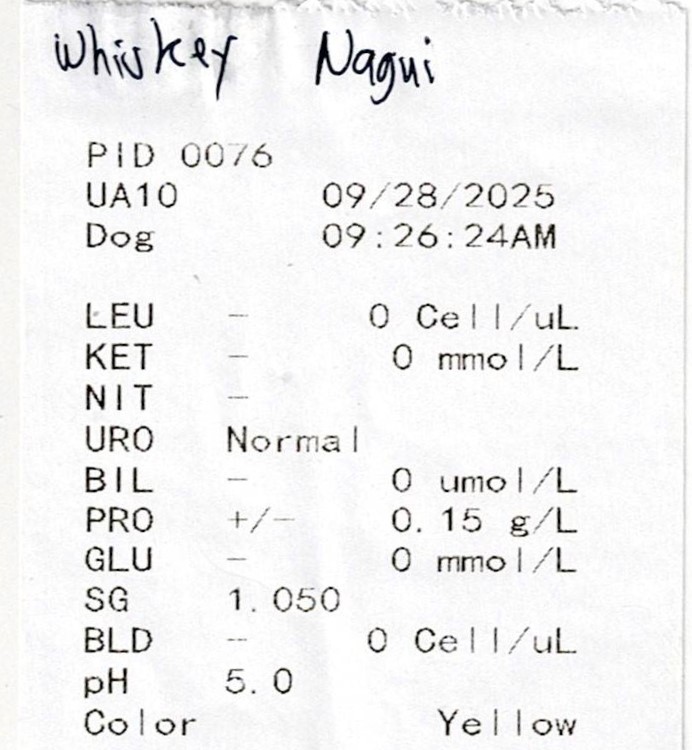 Whiskey Nagui
PID 0076
UA10 09/28/2025
Dog 09:26:24AM
LEU - 0 Cell/uL
KET - 0 mmol/L
NIT -
URO Normal
BIL - 0 umol/L
PRO +/- 0.15 g/L
GLU - 0 mmol/L
SG 1.050
BLD - 0 Cell/uL
pH 5.0
Color Yellow